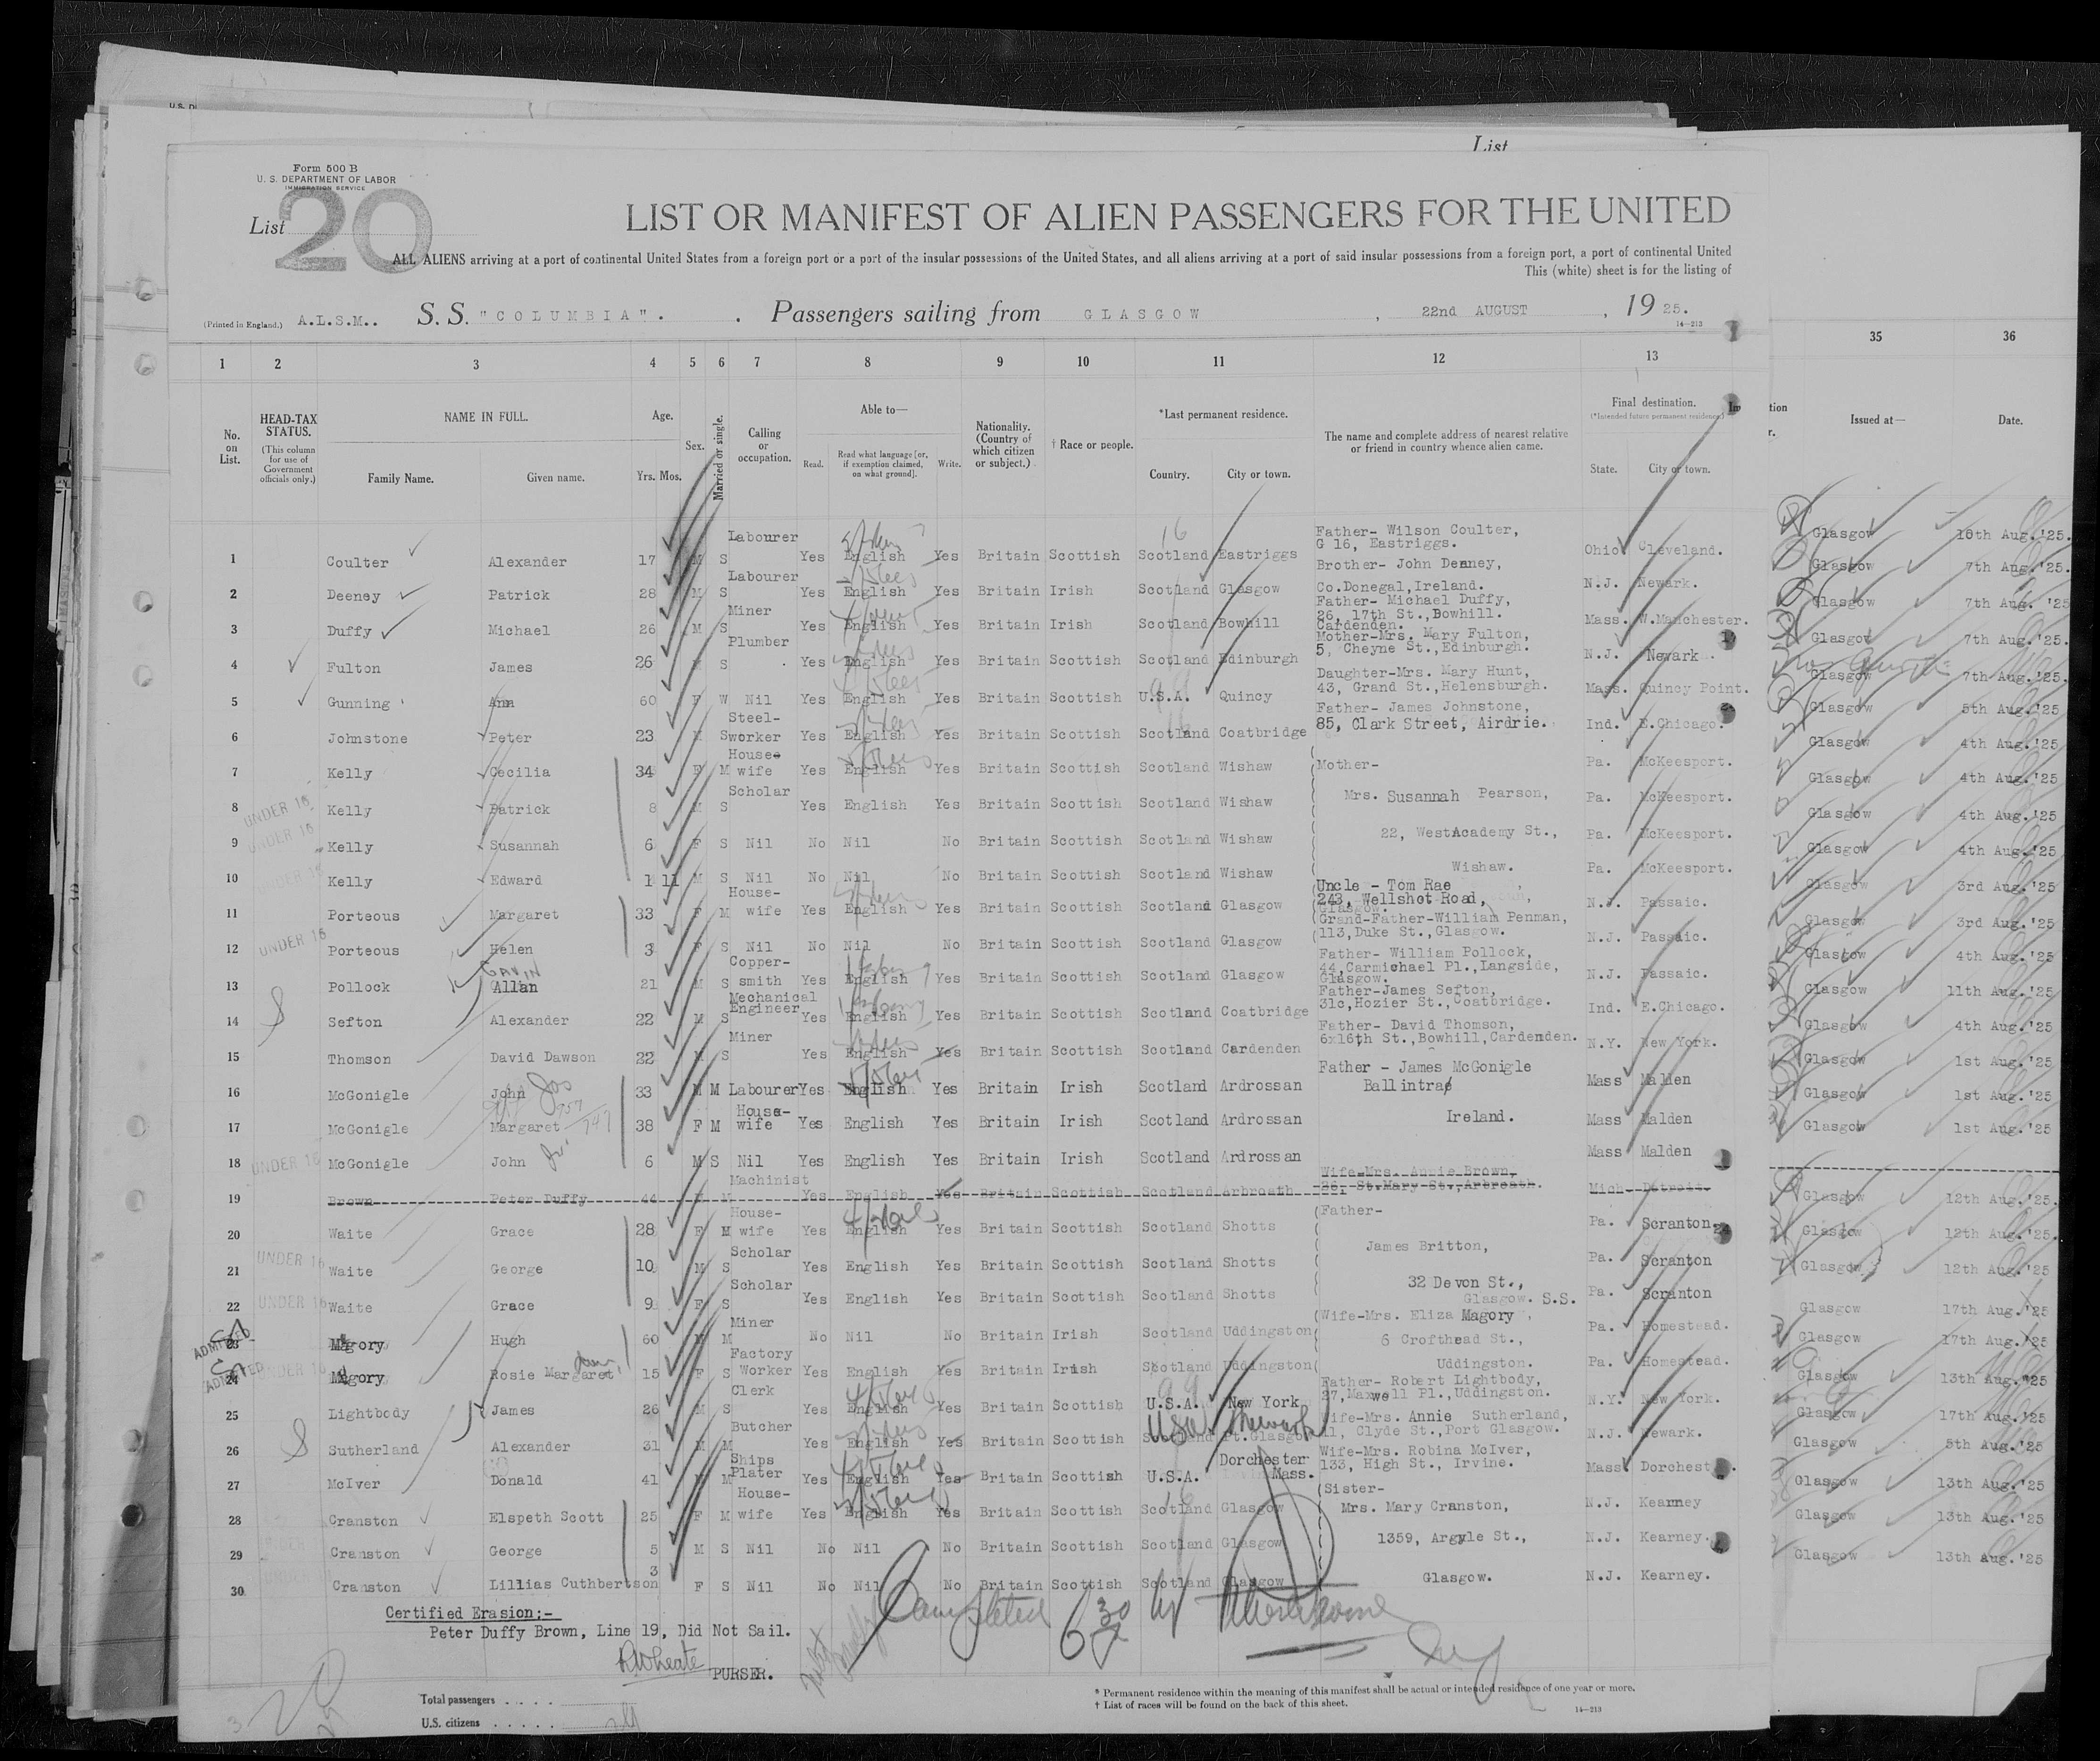 U.S. D
List
Form 500 B
U. S. DEPARTMENT OF LABOR
IMMIGRATION SERVICE
List 20
LIST OR MANIFEST OF ALIEN PASSENGERS FOR THE UNITED
ALL ALIENS arriving at a port of continental United States from a foreign port or a port of the insular possessions of the United States, and all aliens arriving at a port of said insular possessions from a foreign port, a port of continental United
This (white) sheet is for the listing of
(Printed in England.) A.L.S.M.. S. S. "COLUMBIA". Passengers sailing from GLASGOW, 22nd AUGUST, 1925.
14—213
1 2 3 4 5 6 7 8 9 10 11 12 13 35 36
No. on List. HEAD-TAX STATUS. (This column for use of Government officials only.) NAME IN FULL. Family Name. Given name. Age. Yrs. Mos. Sex. Married or single. Calling or occupation. Able to— Read. Read what language [or, if exemption claimed, on what ground]. Write. Nationality. (Country of which citizen or subject.) † Race or people. *Last permanent residence. Country. City or town. The name and complete address of nearest relative or friend in country whence alien came. Final destination. (*Intended future permanent residence.) State. City or town. Issued at— Date.
1 Coulter Alexander 17 M S Labourer Yes English Yes Britain Scottish Scotland Eastriggs Father- Wilson Coulter, G 16, Eastriggs. Ohio Cleveland. Glasgow 10th Aug.'25.
2 Deeney Patrick 28 M S Labourer Yes English Yes Britain Irish Scotland Glasgow Brother- John Deeney, Co.Donegal,Ireland. N.J. Newark. Glasgow 7th Aug.'25.
3 Duffy Michael 26 M S Miner Yes English Yes Britain Irish Scotland Bowhill Father- Michael Duffy, 26, 17th St.,Bowhill. Cardenden. Mass. W.Manchester. Glasgow 7th Aug. '25
4 Fulton James 26 M S Plumber Yes English Yes Britain Scottish Scotland Edinburgh Mother-Mrs. Mary Fulton, 5, Cheyne St.,Edinburgh. N.J. Newark. Glasgow 7th Aug.'25.
5 Gunning Ann 60 F W Nil Yes English Yes Britain Scottish U.S.A. Quincy Daughter-Mrs. Mary Hunt, 43, Grand St.,Helensburgh. Mass. Quincy Point. Glasgow 7th Aug.'25.
6 Johnstone Peter 23 M S Steel-worker Yes English Yes Britain Scottish Scotland Coatbridge Father- James Johnstone, 85, Clark Street, Airdrie. Ind. E.Chicago. Glasgow 5th Aug.'25
7 Kelly Cecilia 34 F M House-wife Yes English Yes Britain Scottish Scotland Wishaw Mother- Pa. McKeesport. Glasgow 4th Aug.'25
8 UNDER 16 Kelly Patrick 8 M S Scholar Yes English Yes Britain Scottish Scotland Wishaw Mrs. Susannah Pearson, Pa. McKeesport. Glasgow 4th Aug.'25
9 UNDER 16 Kelly Susannah 6 F S Nil No Nil No Britain Scottish Scotland Wishaw 22, WestAcademy St., Pa. McKeesport. Glasgow 4th Aug.'25
10 UNDER 16 Kelly Edward 1 11 M S Nil No Nil No Britain Scottish Scotland Wishaw Wishaw. Pa. McKeesport. Glasgow 4th Aug.'25
11 Porteous Margaret 33 F M House-wife Yes English Yes Britain Scottish Scotland Glasgow Uncle - Tom Rae, 243, Wellshot Road, Glasgow. N.J. Passaic. Glasgow 3rd Aug.'25
12 UNDER 16 Porteous Helen 3 F S Nil No Nil No Britain Scottish Scotland Glasgow Grand-Father-William Penman, 113,Duke St.,Glasgow. N.J. Passaic. Glasgow 3rd Aug.'25
13 Pollock GAVIN Allan 21 M S Copper-smith Yes English Yes Britain Scottish Scotland Glasgow Father- William Pollock, 44,Carmichael Pl.,Langside, Glasgow. N.J. Passaic. Glasgow 4th Aug.'25
14 Sefton Alexander 22 M S Mechanical Engineer Yes English Yes Britain Scottish Scotland Coatbridge Father-James Sefton, 31c,Hozier St.,Coatbridge. Ind. E.Chicago. Glasgow 11th Aug.'25
15 Thomson David Dawson 22 M S Miner Yes English Yes Britain Scottish Scotland Cardenden Father- David Thomson, 6x16th St.,Bowhill,Cardenden. N.Y. New York. Glasgow 4th Aug.'25
16 McGonigle John 33 M M Labourer Yes English Yes Britain Irish Scotland Ardrossan Father - James McGonigle Ballintra Mass Malden Glasgow 1st Aug.'25
17 McGonigle Margaret 38 F M House-wife Yes English Yes Britain Irish Scotland Ardrossan Ireland. Mass Malden Glasgow 1st Aug.'25
18 UNDER 16 McGonigle John 6 M S Nil Yes English Yes Britain Irish Scotland Ardrossan Mass Malden Glasgow 1st Aug.'25
19 Brown Peter Duffy 44 M M Machinist Yes English Yes Britain Scottish Scotland Arbroath Wife-Mrs. Annie Brown, 26, St.Mary St.,Arbroath. Mich. Detroit.
20 Waite Grace 28 F M House-wife Yes English Yes Britain Scottish Scotland Shotts Father- Pa. Scranton Glasgow 12th Aug.'25
21 UNDER 16 Waite George 10 M S Scholar Yes English Yes Britain Scottish Scotland Shotts James Britton, Pa. Scranton Glasgow 12th Aug.'25
22 UNDER 16 Waite Grace 9 F S Scholar Yes English Yes Britain Scottish Scotland Shotts 32 Devon St., Glasgow. S.S. Pa. Scranton Glasgow 12th Aug.'25
23 ADMITTED Magory Hugh 60 M M Miner No Nil No Britain Irish Scotland Uddingston Wife-Mrs. Eliza Magory, 6 Crofthead St., Pa. Homestead. Glasgow 17th Aug.'25
24 ADMITTED UNDER 16 Magory Rosie Margaret 15 F S Factory Worker Yes English Yes Britain Irish Scotland Uddingston Uddingston. Pa. Homestead. Glasgow 17th Aug.'25
25 Lightbody James 26 M S Clerk Yes English Yes Britain Scottish U.S.A. New York Father- Robert Lightbody, 27,Maxwell Pl.,Uddingston. N.Y. New York. Glasgow 13th Aug.'25
26 Sutherland Alexander 31 M M Butcher Yes English Yes Britain Scottish Scotland Pt.Glasgow USA Newark Wife-Mrs. Annie Sutherland, 11, Clyde St.,Port Glasgow. N.J. Newark. Glasgow 17th Aug.'25
27 McIver Donald 41 M M Ships Plater Yes English Yes Britain Scottish U.S.A. Dorchester Mass. Wife-Mrs. Robina McIver, 133, High St., Irvine. Mass. Dorchest Glasgow 5th Aug.'25
28 Cranston Elspeth Scott 25 F M House-wife Yes English Yes Britain Scottish Scotland Glasgow Sister- Mrs. Mary Cranston, N.J. Kearney Glasgow 13th Aug.'25
29 Cranston George 5 M S Nil No Nil No Britain Scottish Scotland Glasgow 1359, Argyle St., N.J. Kearney. Glasgow 13th Aug.'25
30 Cranston Lillias Cuthbertson 3 F S Nil No Nil No Britain Scottish Scotland Glasgow Glasgow. N.J. Kearney. Glasgow 13th Aug.'25
Certified Erasion:-
Peter Duffy Brown, Line 19, Did Not Sail.
PURSER.
Completed
Total passengers
U.S. citizens
* Permanent residence within the meaning of this manifest shall be actual or intended residence of one year or more.
† List of races will be found on the back of this sheet.
14—213